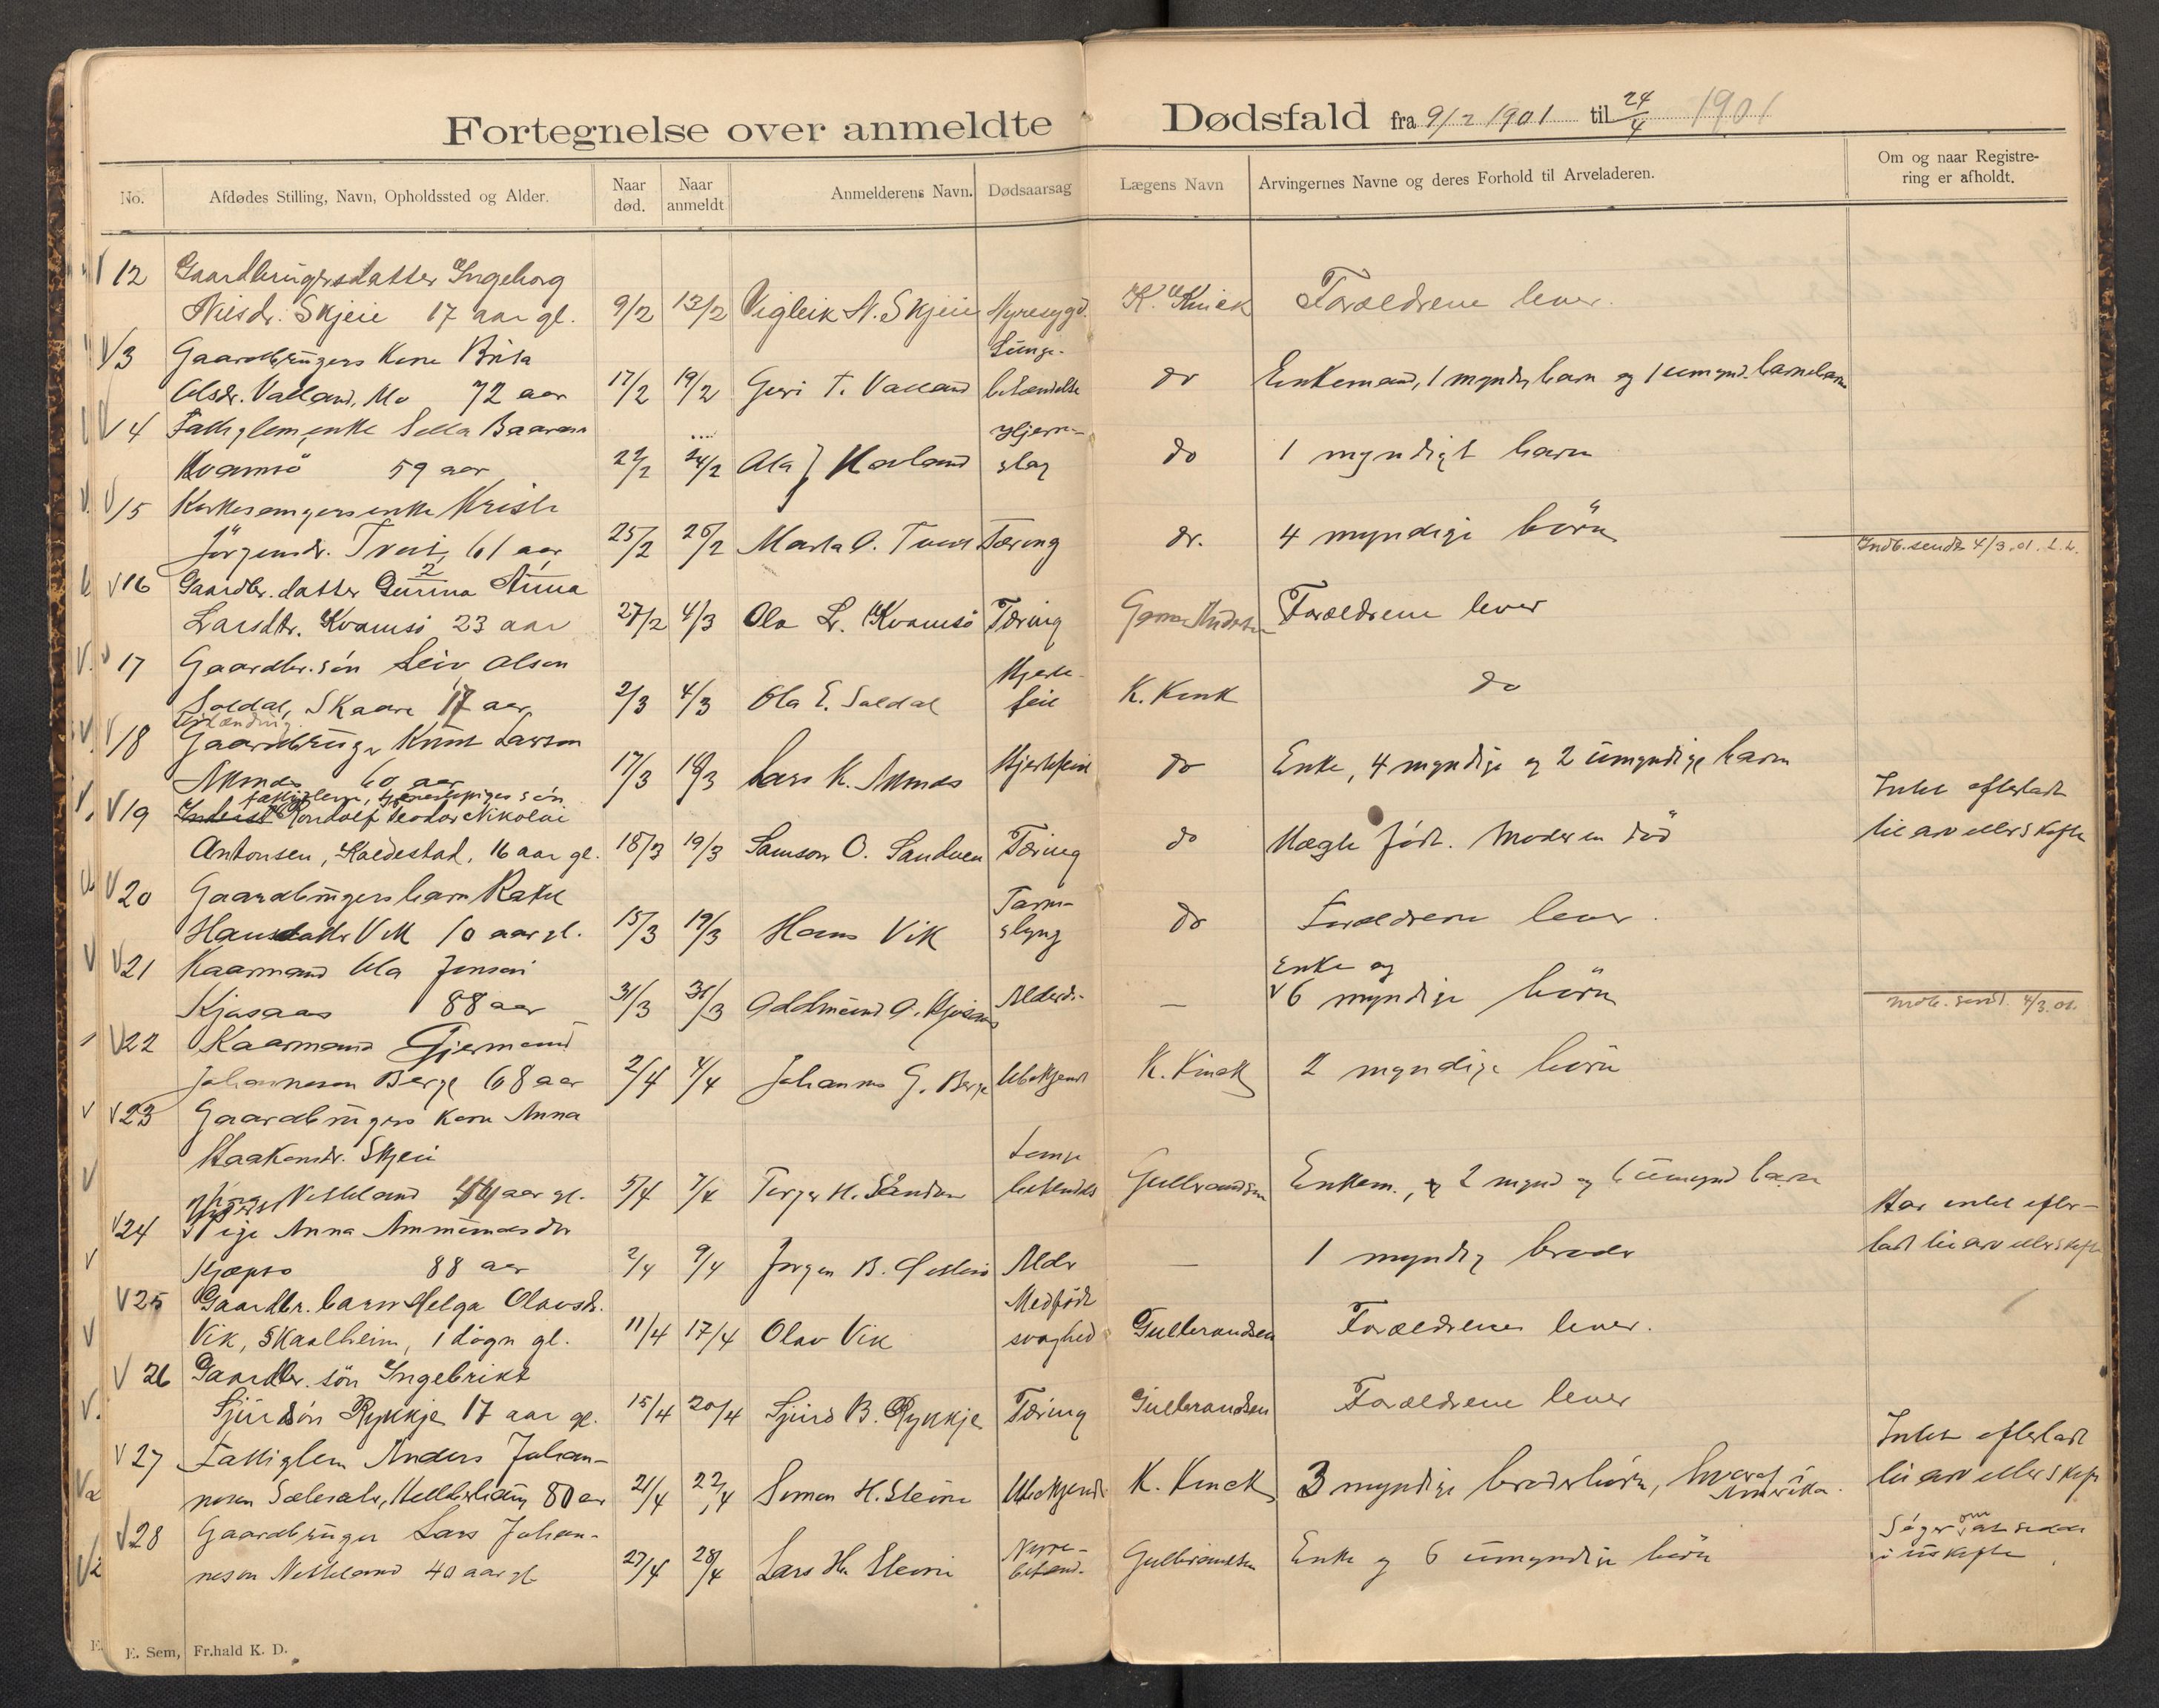 Fortegnelse over anmeldte Dødsfald fra 9/2 1901 til 24/4 1901
No. Afdødes Stilling, Navn, Opholdssted og Alder. Naar død. Naar anmeldt Anmelderens Navn. Dødsaarsag Lægens Navn Arvingernes Navne og deres Forhold til Arveladeren. Om og naar Registrering er afholdt.
12 Gaardbrugersdatter Ingeborg
Nilsdr. Skjeie 17 aar gl. 9/2 13/2 Vigleik N. Skjeie Nyresygd. K. Kinck Forældrene lever.
13 Gaardbrugers Kone Brita Lunge-
Olsdr. Valland, Mo 72 aar 17/2 19/2 Geiri T. Valland betændelse do Enkemand, 1 myndig barn og 1 umynd. barnebarn
14 Fattiglem, enke Sella Hjerne-
Kvamsö 59 aar 22/2 24/2 Ola slag do 1 myndigt barn
15 Kirkesangersenke
Jörgensdr. 61 aar 25/2 26/2 Marta O. Tæring do. 4 myndige börn Indb. sendt 4/3.01.
16 Gaardbr. datter Gurina Anna
Larsdtr. Kvamsö 23 aar 27/2 4/3 Ola L. Kvamsö Tæring Forældrene lever
17 Gaardbr. sön Leiv Olsen Hjerte-
Soldal, Skaare 17 aar 2/3 4/3 Ola E. Soldal feil K. Kink do
18 Gaardbruger Knut Larsen
60 aar 17/3 18/3 Lars K. Hjertefeil do Enke, 4 myndige og 2 umyndige barn
fattiglem, sön Intet efterladt
19 Teodor Nikolai
Antonsen, Kaldestad, 16 aar gl. 18/3 19/3 Samson O. Sandven Tæring do Uægte født. Moderen död til arv eller skifte
20 Gaardbrugers barn Rakel Tarm-
Hansdatter Vik 10 aar gl. 15/3 19/3 Hans Vik slyng do Forældrene lever.
21 Kaarmand Ola Jensen Enke og
Kjosaas 88 aar 31/3 31/3 Oddmund O. Kjosaas Alderd. — 6 myndige börn Indb. sendt. 4/3.01.
22 Kaarmand Gjermund
Johanneson Berge 68 aar 2/4 4/4 Johannes G. Berge Ubekjendt K. Kinck 2 myndige börn
23 Gaardbrugers Kone Anna
Haakonsdr. Skjeie Lunge
Nesteland aar gl. 5/4 7/4 Torger H. Gulbrandsen Enkem., 2 mynd og 6 umynd barn
24 Pige Anna Ammundsdtr Har intet efter-
Kjæpso 88 aar 2/4 9/4 Jörgen B. Alder — 1 myndig broder ladt til arv eller skifte
25 Gaardbr. barn Helga Olavsdr. Medfødt
Vik, Skaalheim, 1 dögn gl. 11/4 17/4 Olav Vik svaghed Gulbrandsen Forældrene lever.
26 Gaardbr. sön Ingebrikt
Sjurdsön Rykkje 17 aar gl. 15/4 20/4 Sjurd B. Rykkje Tæring Gulbrandsen Forældrene lever
27 Fattiglem Anders Johan- Intet efterladt
nesen 80 aar 21/4 22/4 Simon H. Steine Ubekjendt K. Kinck 3 myndige broderbörn, hvoraf i Amerika. til arv eller skifte
28 Gaardbruger Lars Johan- Nyre- Söger om at sidde
nesen Nesteland 40 aar gl 27/4 28/4 Lars H. Steine betænd. Gulbrandsen Enke og 6 umyndige börn i uskifte
E. Sem, Fr.hald K. D.